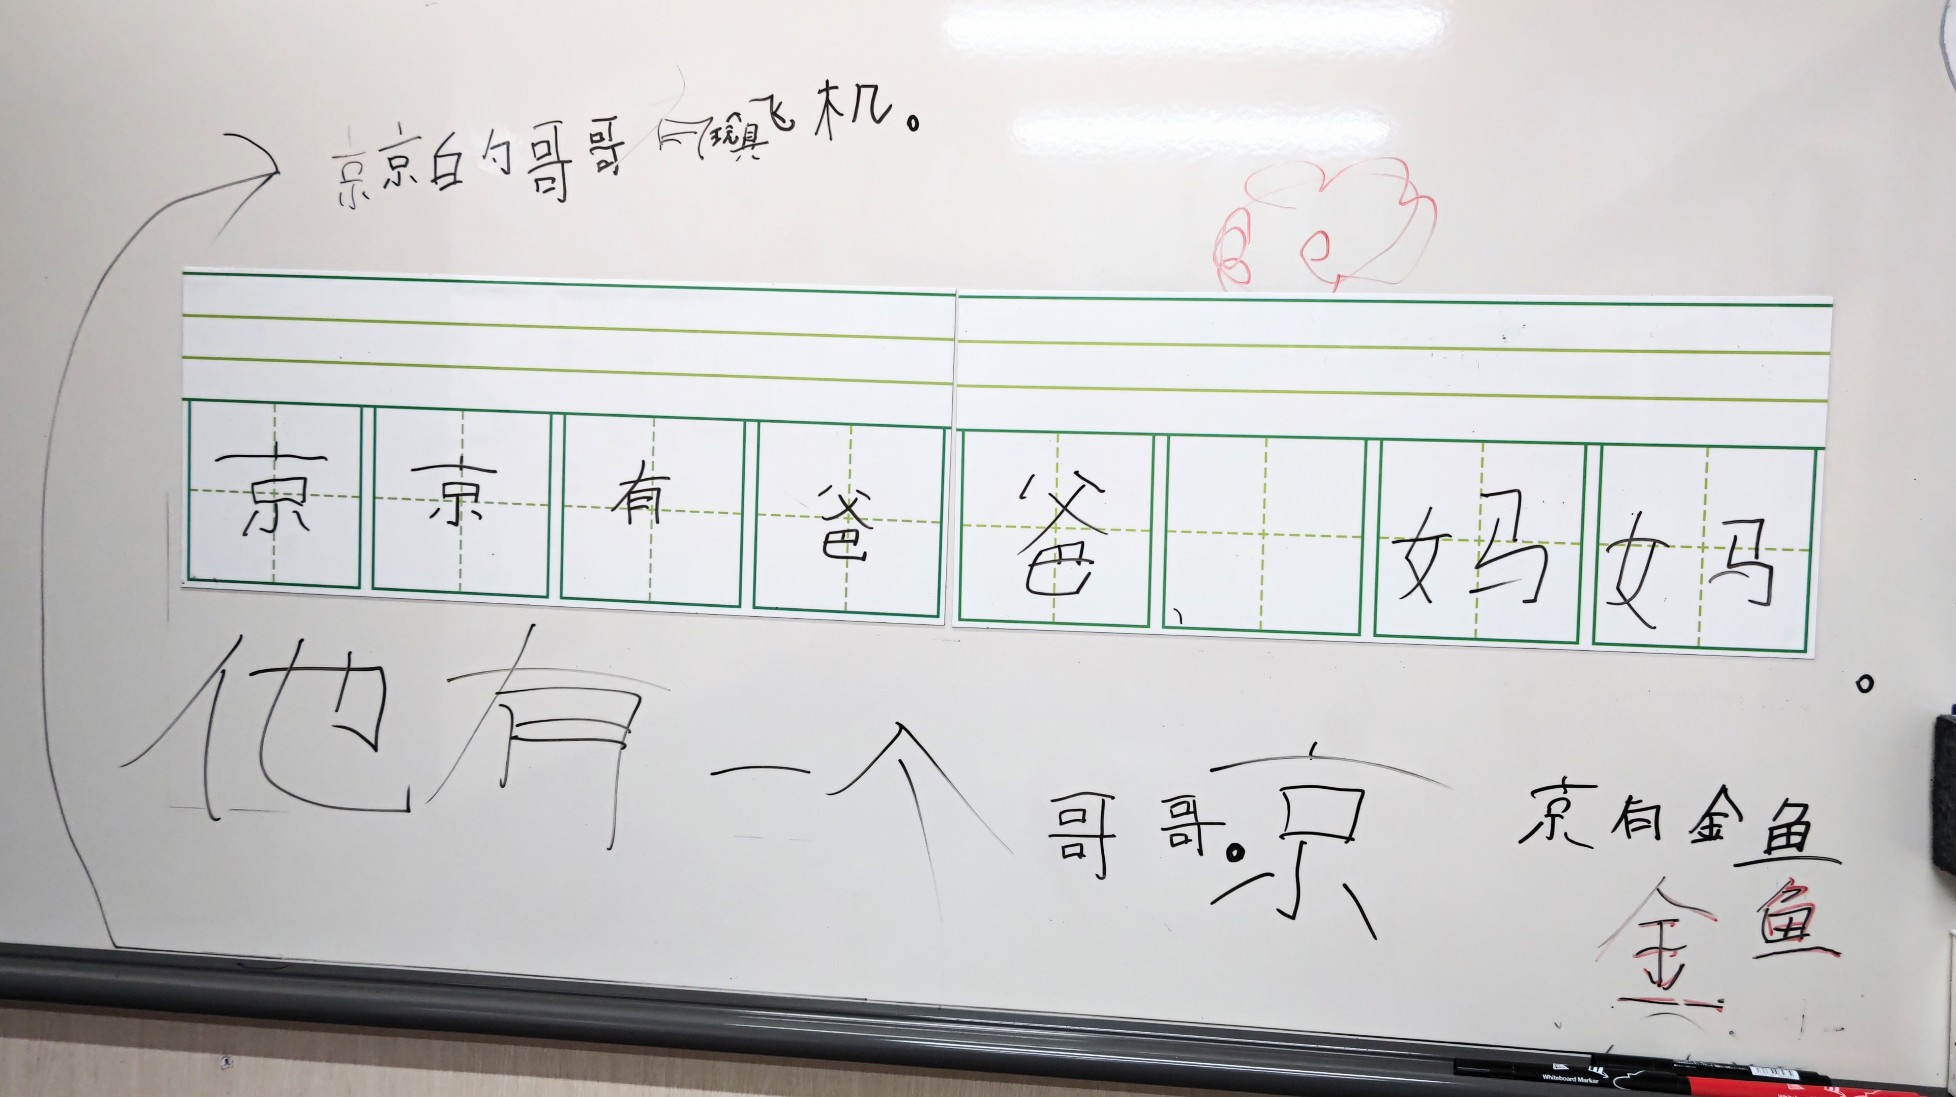 京京有爸爸、妈妈。
他有一个哥哥。京京有金鱼
金鱼
京京的哥哥有玩具飞机。
Whiteboard Marker